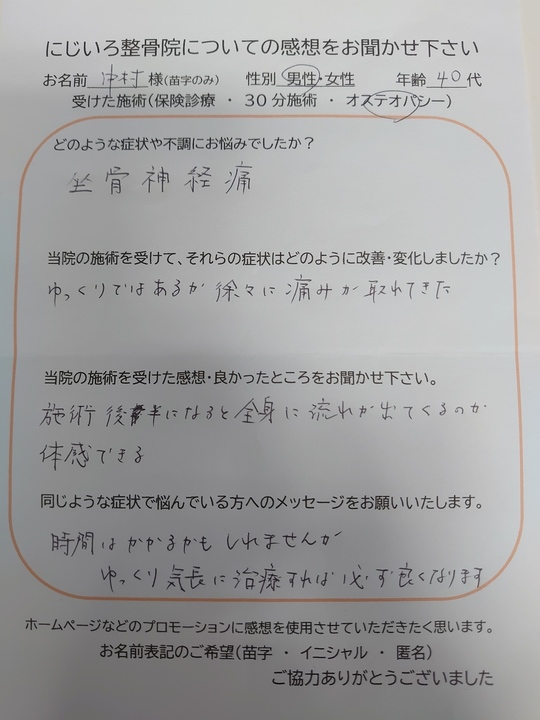 にじいろ整骨院についての感想をお聞かせ下さい
お名前 中村 様(苗字のみ) 性別 男性・女性 年齢 40 代
受けた施術(保険診療 ・ 30分施術 ・ オステオパシー)
どのような症状や不調にお悩みでしたか?
坐骨神経痛
当院の施術を受けて、それらの症状はどのように改善・変化しましたか?
ゆっくりではあるが徐々に痛みが取れてきた
当院の施術を受けた感想・良かったところをお聞かせ下さい。
施術後半になると全身に流れが出てくるのが
体感できる
同じような症状で悩んでいる方へのメッセージをお願いいたします。
時間はかかるかもしれませんが
ゆっくり気長に治療すれば必ず良くなります
ホームページなどのプロモーションに感想を使用させていただきたく思います。
お名前表記のご希望(苗字 ・ イニシャル ・ 匿名)
ご協力ありがとうございました